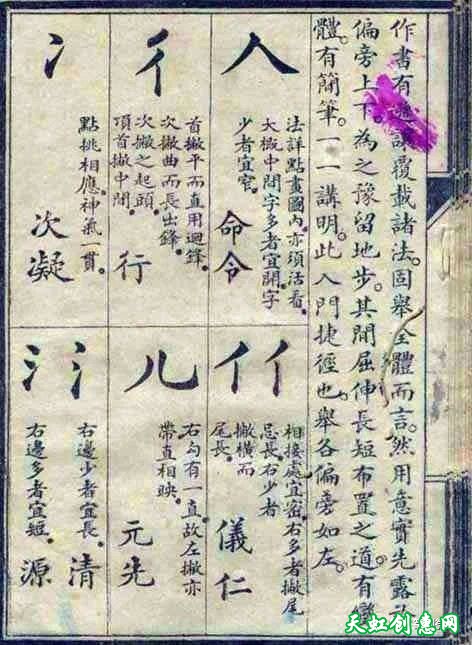 作書有讓覆載諸法。固舉全體而言。然用意實先露
偏旁上下。為之豫留地步。其間屈伸長短布置之道。有
體。有簡筆。一一講明。此入門捷徑也。舉各偏旁如左。
人
法詳點畫圖內。亦須活看。
大概中間字多者宜開。字
少者宜窄。
命令
彳
首撇平而直用迴鋒。
次撇曲而長出鋒。
次撇之起頭。
頂首撇中間。
行
冫
點挑相應。神氣一貫。
次凝
亻亻
相接處宜密。右多者撇尾
忌長。右少者
撇橫而
尾長。
儀仁
儿
右勾有一直。故左撇亦
帶直相映。
元先
氵氵
右邊少者宜長。清
右邊多者宜短。源
天虹创意网